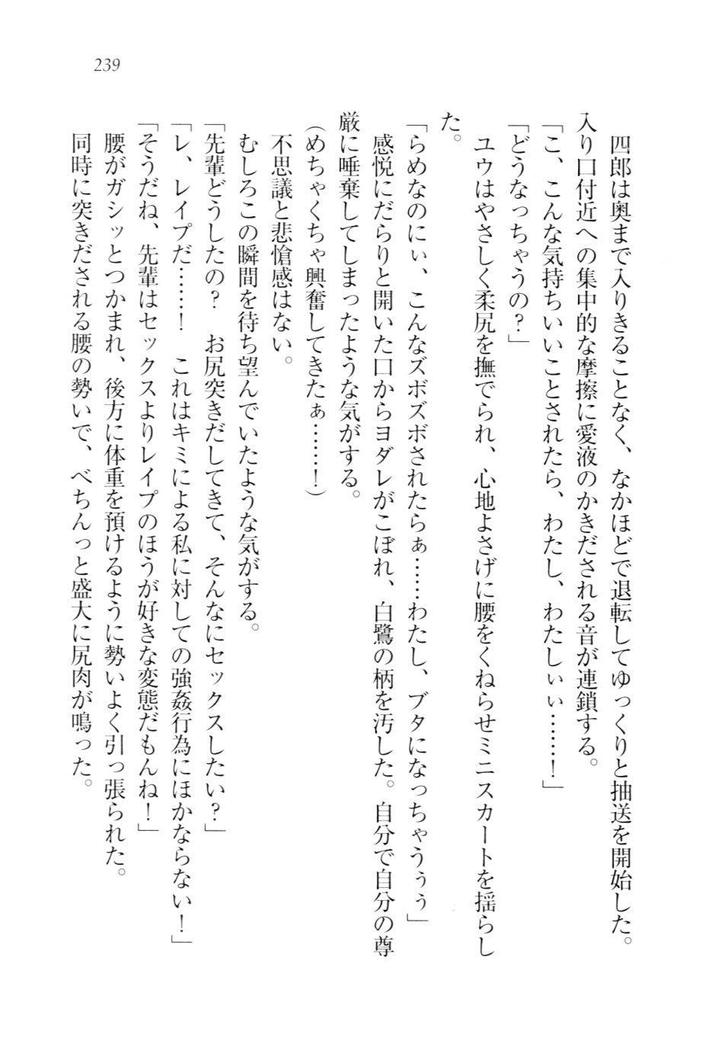 239
四郎は奥まで入りきることなく、なかほどで退転してゆっくりと抽送を開始した。
入り口付近への集中的な摩擦に愛液のかきだされる音が連鎖する。
「こ、こんな気持ちいいことされたら、わたし、わたしぃぃ……！」
「どうなっちゃうの？」
ユウはやさしく柔尻を撫でられ、心地よさげに腰をくねらせミニスカートを揺らし
た。
「らめなのにぃ、こんなズボズボされたらぁ……わたし、ブタになっちゃうぅぅ」
感悦にだらりと開いた口からヨダレがこぼれ、白鷺の柄を汚した。自分で自分の尊
厳に唾棄してしまったような気がする。
（めちゃくちゃ興奮してきたぁ……！）
不思議と悲愴感はない。
むしろこの瞬間を待ち望んでいたような気がする。
「先輩どうしたの？　お尻突きだしてきて、そんなにセックスしたい？」
「レ、レイプだ……！　これはキミによる私に対しての強姦行為にほかならない！」
「そうだね、先輩はセックスよりレイプのほうが好きな変態だもんね！」
腰がガシッとつかまれ、後方に体重を預けるように勢いよく引っ張られた。
同時に突きだされる腰の勢いで、べちんっと盛大に尻肉が鳴った。